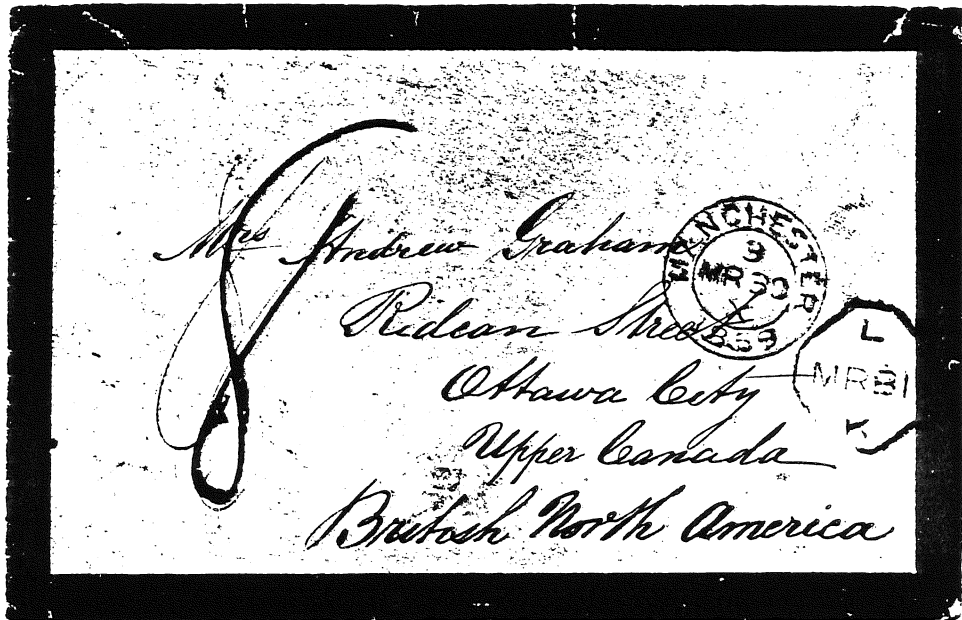 8
Mrs Andrew Graham
Rideau Street
Ottawa City
Upper Canada
British North America
MANCHESTER
9
MR 30
X
L
MR31
K